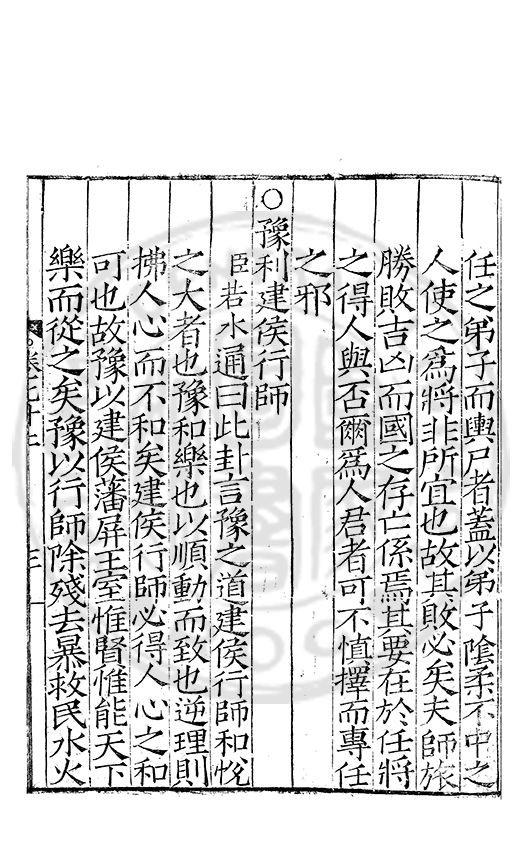 任之弟子而輿尸者蓋以弟子陰柔不中之
人使之爲將非所宜也故其敗必矣夫師旅
勝敗吉凶而國之存亡係焉其要在於任將
之得人與否爾爲人君者可不慎擇而專任
之邪
○豫利建侯行師
臣若水通曰此卦言豫之道建侯行師和悅
之大者也豫和樂也以順動而致也逆理則
拂人心而不和矣建侯行師必得人心之和
可也故豫以建侯藩屏王室惟賢惟能天下
樂而從之矣豫以行師除殘去暴救民水火